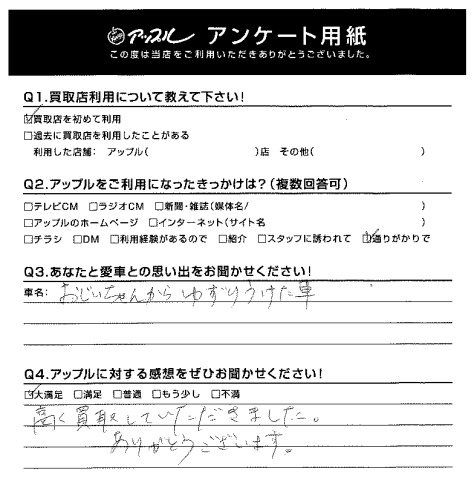 アップル アンケート用紙
この度は当店をご利用いただきありがとうございました。
Q1.買取店利用について教えて下さい!
☑買取店を初めて利用
□過去に買取店を利用したことがある
利用した店舗: アップル( )店 その他( )
Q2.アップルをご利用になったきっかけは?(複数回答可)
□テレビCM □ラジオCM □新聞・雑誌(媒体名/ )
□アップルのホームページ □インターネット(サイト名 )
□チラシ □DM □利用経験があるので □紹介 □スタッフに誘われて ☑通りがかりで
Q3.あなたと愛車との思い出をお聞かせください!
車名: おじいちゃんからゆずりうけた車
Q4.アップルに対する感想をぜひお聞かせください!
☑大満足 □満足 □普通 □もう少し □不満
高く買取していただきました。
ありがとうございます。